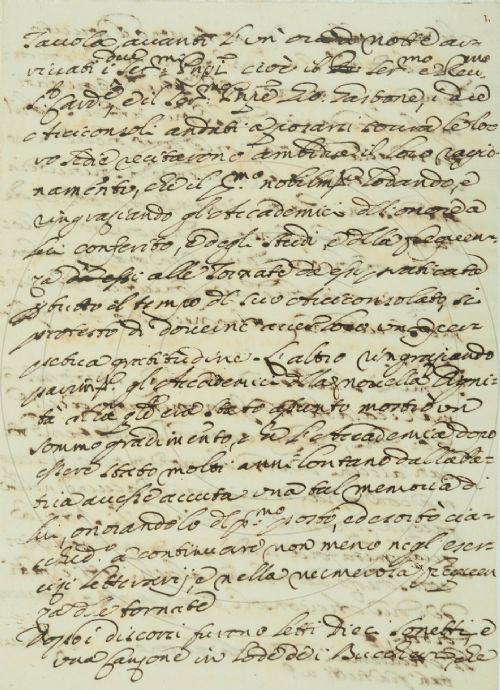 Tavola avanti un' ora di notte ar-
rivati i due Ser.mi Prnpi cioè il Ser.mo e Rev.mo
S. Card.e, e il Ser.mo Prnpe Gio. Gastone, i due
Arciconsoli andati a posarsi sovra le lo-
ro Sedie recitarono ambidue il loro ragio-
namento, che il p.mo nobilm.te lodando, e
ringraziando gl'Accademici dl onore a
lui conferito, e degli studi, e dlla frequen-
za alle Tornate da essi praticata
p tutto el tempo dl suo Arciconsolato, si
protestò di doverne aver loro una per-
petua gratitudine. L'altro ringraziando
parim.te gl'Accademici dlla novella Digni-
tà alla qle era stato assunto mostrò un
sommo gradimento, e che l'Accademia dopo
essere stato molti anni lontano dalla Pa-
tria avesse avuta una tal memoria di
lui, onorandolo dl p.mo posto, ed esortò cia-
sched.o a continuare non meno negl'eser-
cizi letterarij, e nella frequen-
za dle tornate
Dopo i discorsi furono letti Dieci Sonetti, e
una Canzone in lode de i